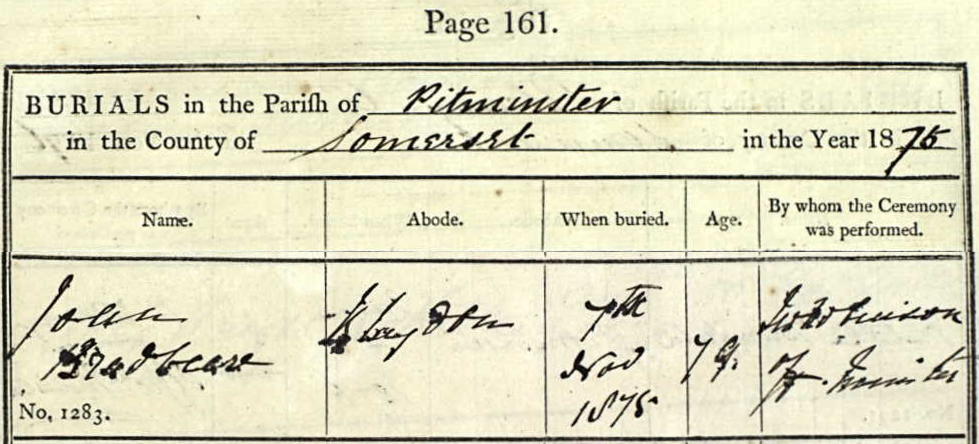 Page 161.
BURIALS in the Parish of Pitminster
in the County of Somerset in the Year 1875
Name. Abode. When buried. Age. By whom the Ceremony was performed.
John
Bradbeare
No. 1283.
Blagdon
7th
Nov
1875
79.